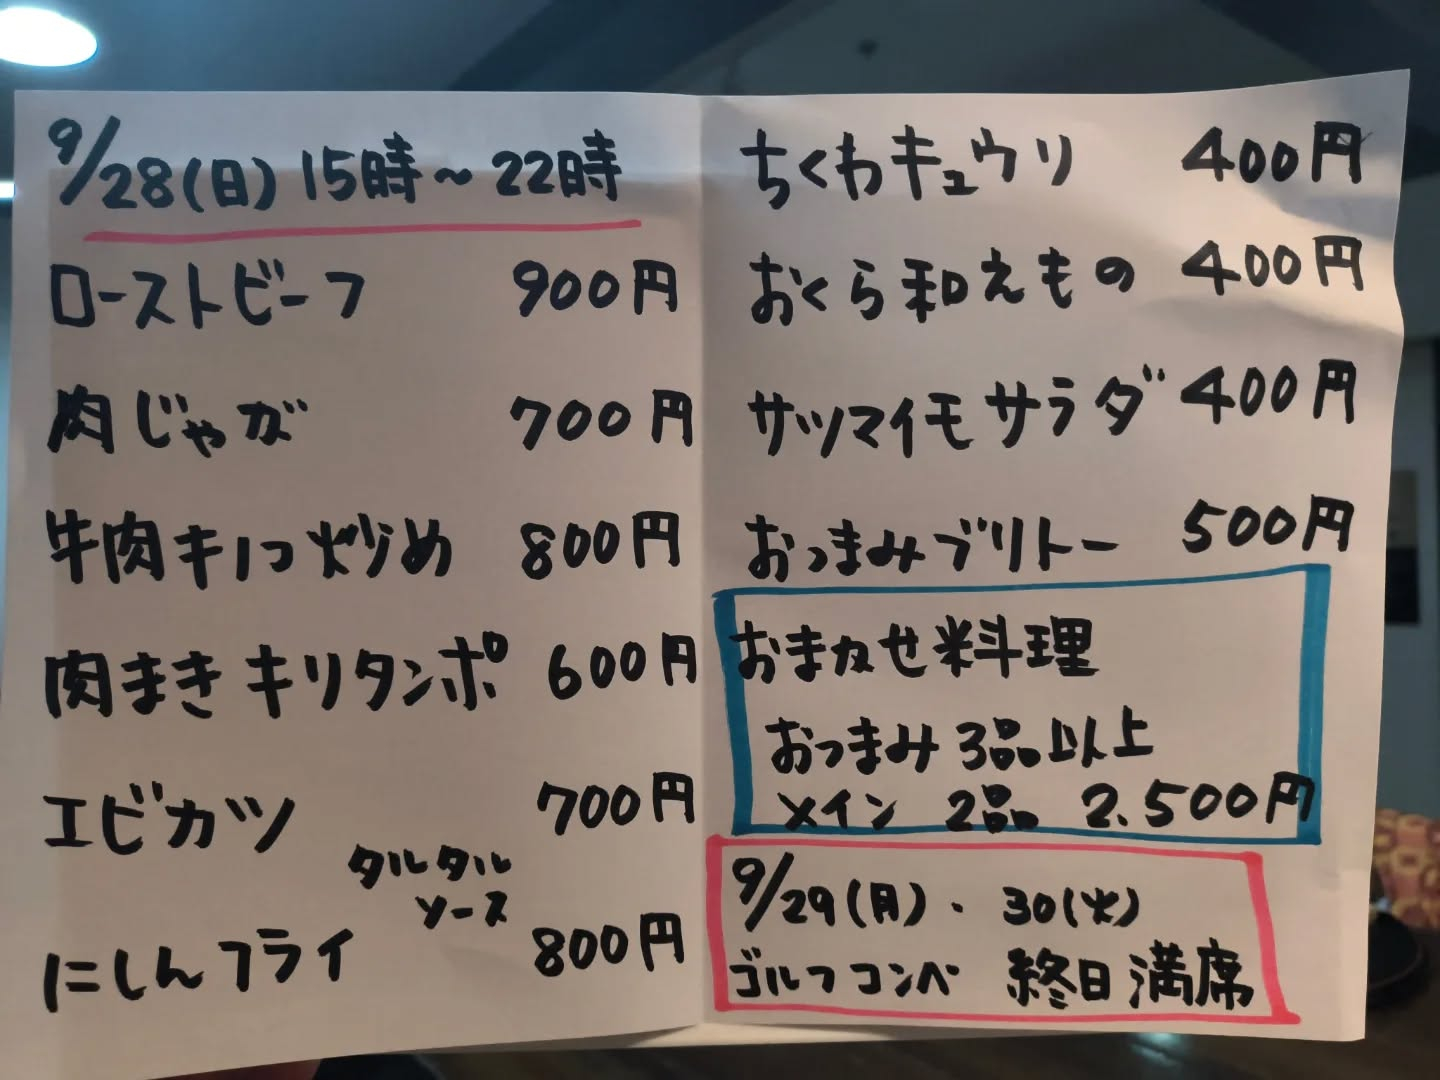 9/28(日) 15時~22時
ローストビーフ 900円
肉じゃが 700円
牛肉キノコ炒め 800円
肉まきキリタンポ 600円
エビカツ 700円
タルタル
ソース
にしんフライ 800円
ちくわキュウリ 400円
おくら和えもの 400円
サツマイモサラダ 400円
おつまみブリトー 500円
おまかせ料理
おつまみ 3品以上
メイン 2品 2.500円
9/29(月)・30(火)
ゴルフコンペ 終日満席